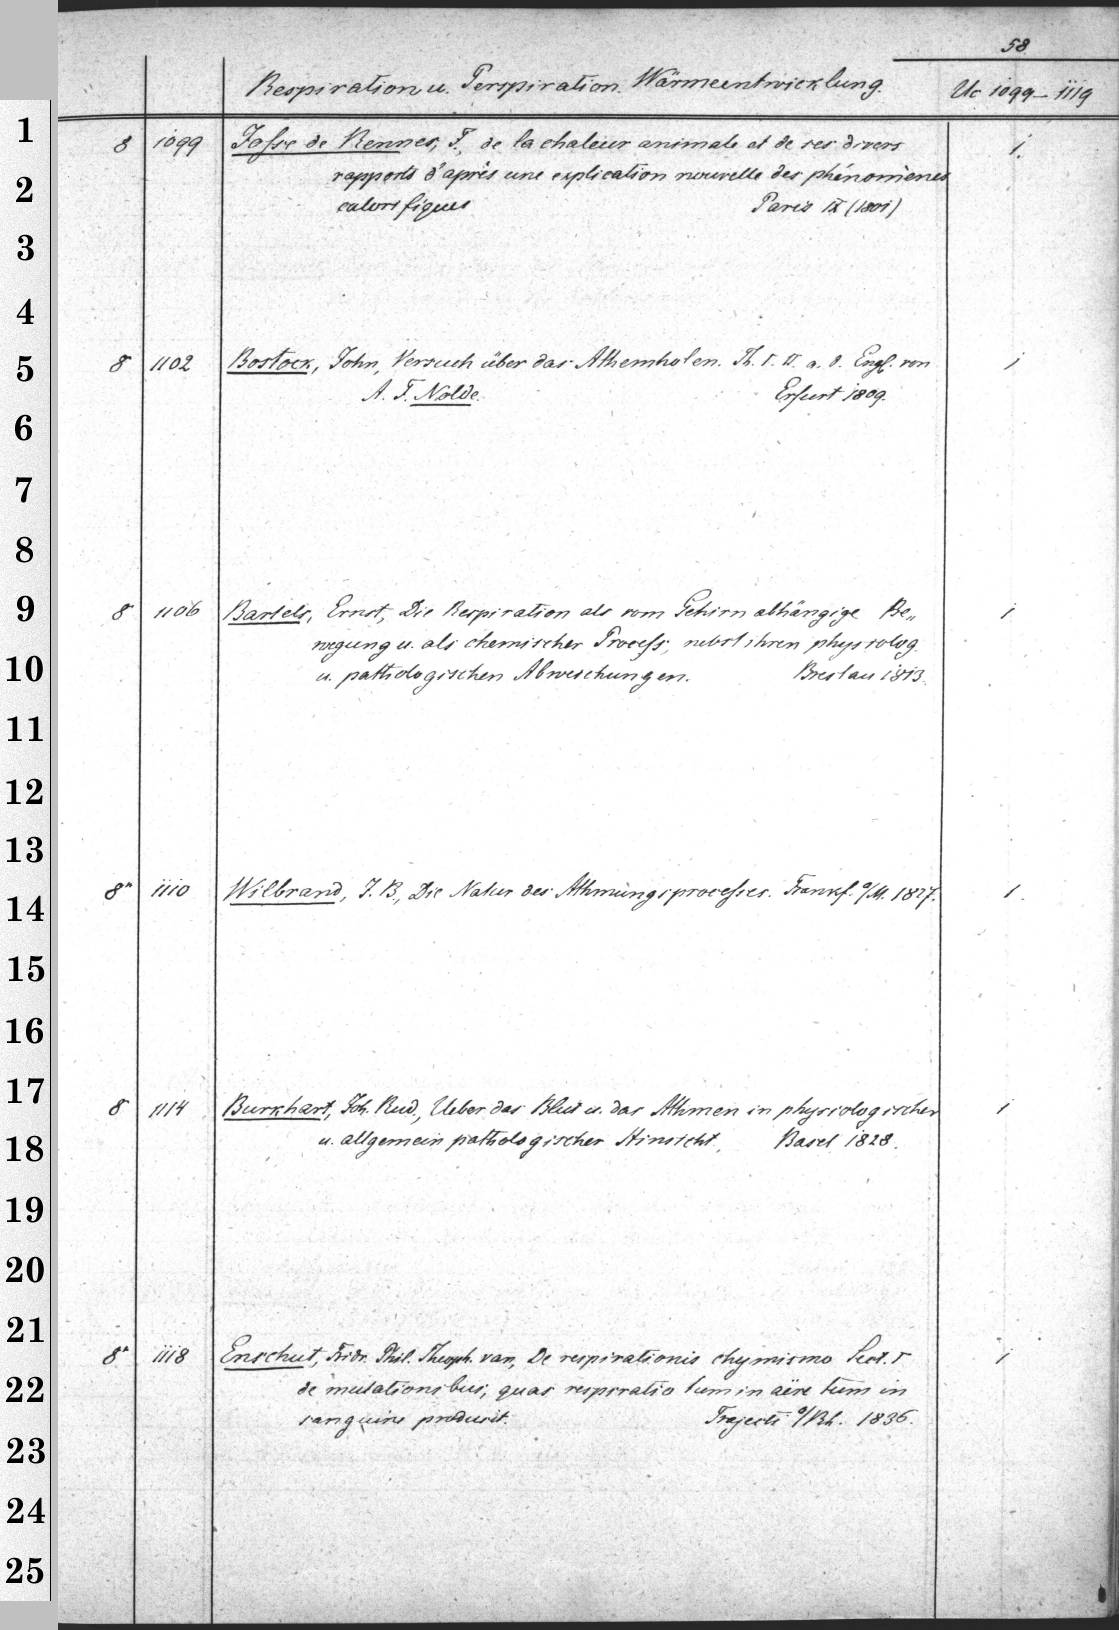 58
Respiration u. Perspiration. Wärmeentwicklung. Uc 1099–1119
1
8 1099 Josse de Rennes, F., de la chaleur animale et de ses divers 1.
2
rapports d'après une explication nouvelle des phénomènes
calorifiques Paris IX (1801)
3
4
5
8 1102 Bostock, John, Versuch über das Athemholen. Th. I. II. a. d. Engl. von 1
A. F. Nolde. Erfurt 1809.
6
7
8
9
8 1106 Bartels, Ernst, Die Respiration als vom Gehirn abhängige Be„ 1
wegung u. als chemischer Process, nebst ihren physiolog.
10
u. pathologischen Abweichungen. Breslau 1813.
11
12
13
14
8° 1110 Wilbrand, J. B., Die Natur des Athmungsprocesses. Frankf. a/M. 1827. 1.
15
16
17
8 1114 Burkhart, Joh. Rud., Ueber das Blut u. das Athmen in physiologischer 1
18
u. allgemein pathologischer Hinsicht, Basel 1828.
19
20
21
8° 1118 Enschut, Fridr. Phil. Theoph. van, De respirationis chymismo Sect. I 1
22
de mutationibus, quas respiratio tum in aëre tum in
sanguine producit. Trajecti a/Rh. 1836.
23
24
25